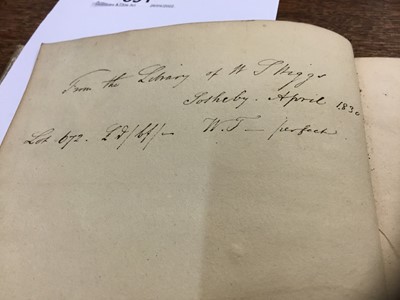 From the Library of W S Higgs
Sotheby. April 1830
Lot 672. W.T — perfect